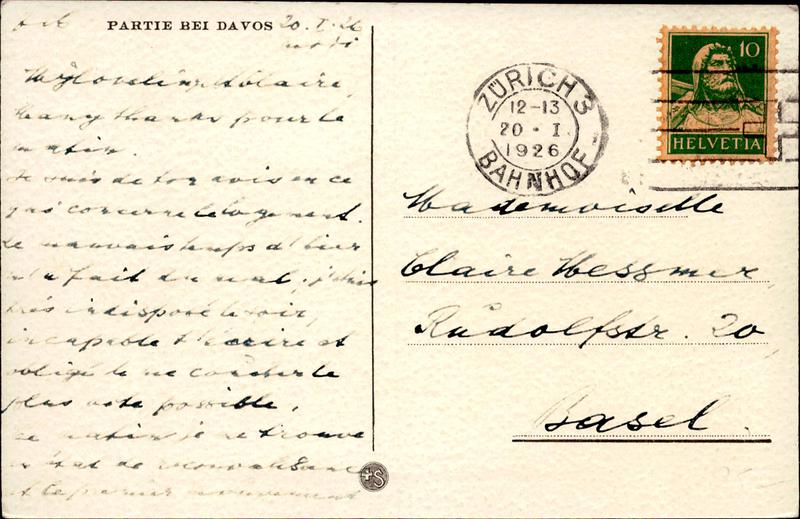 PARTIE BEI DAVOS 20.I.26
midi
My loveling Claire,
Many thanks pour le
matin.
Je suis de ton avis en ce
qui concerne le logement.
Le mauvais temps d'hier
m'a fait du mal, j'étais
très indisposé le soir,
incapable d'écrire et
obligé de me coucher le
plus vite possible.
Ce matin je me trouve
en état de
et le premier mouvement
ZÜRICH 3
12-13
20 · I
1926
BAHNHOF
10
HELVETIA
Mademoiselle
Claire Messmer,
Rudolfstr. 20
Basel.
+S